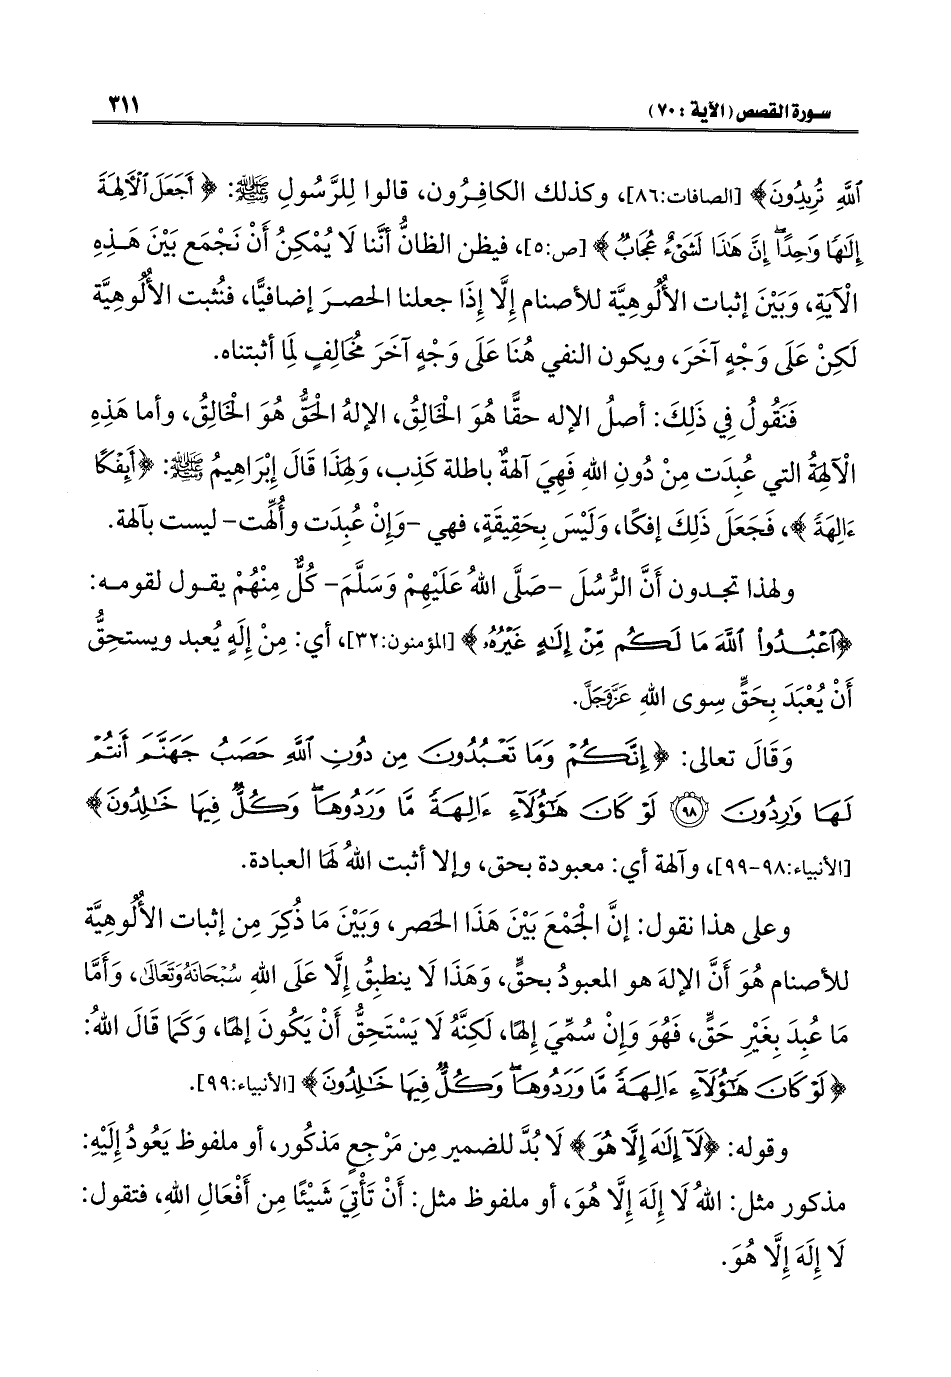 سورة القصص (الآية : ٧٠) ٣١١
ٱللَّهِ تُرِيدُونَ﴾ [الصافات:٨٦]، وكذلك الكافِرُون، قالوا لِلرَّسُولِ ﷺ: ﴿أَجَعَلَ ٱلْأَلِهَةَ
إِلَٰهًا وَٰحِدًا ۖ إِنَّ هَٰذَا لَشَىْءٌ عُجَابٌ﴾ [ص:٥]، فيظن الظانُّ أنَّنا لَا يُمْكِنُ أَنْ نَجْمَع بَيْنَ هَذِهِ
الْآيَةِ، وَبَيْنَ إثبات الأُلُوهِيَّة للأصنام إِلَّا إِذَا جعلنا الحصرَ إضافيًّا، فنُثبت الأُلُوهِيَّة
لَكِنْ عَلَى وَجْهٍ آخَرَ، ويكون النفي هُنَا عَلَى وَجْهٍ آخَرَ مُخَالِفٍ لِمَا أثبتناه.
فَنَقُولُ فِي ذَلِكَ: أصلُ الإله حقًّا هُوَ الْخَالِقُ، الإلهُ الْحَقُّ هُوَ الْخَالِقُ، وأما هَذِهِ
الْآلِهَةُ التي عُبِدَت مِنْ دُونِ اللهِ فَهِيَ آلهةٌ باطلة كَذِب، وَلِهَذَا قَالَ إِبْرَاهِيمُ ﷺ: ﴿أَئِفْكًا
ءَالِهَةً﴾، فَجَعَلَ ذَلِكَ إفكًا، وَلَيْسَ بِحَقِيقَةٍ، فهي -وَإِنْ عُبِدَت وأُلِّهت- ليست بآلهة.
ولهذا تجدون أَنَّ الرُّسُلَ -صَلَّى اللهُ عَلَيْهِمْ وَسَلَّمَ- كُلٌّ مِنْهُمْ يقول لقومه:
﴿ٱعْبُدُوا۟ ٱللَّهَ مَا لَكُم مِّنْ إِلَٰهٍ غَيْرُهُۥ﴾ [المؤمنون:٣٢]، أي: مِنْ إِلَهٍ يُعبد ويستحِقُّ
أَنْ يُعْبَدَ بِحَقٍّ سِوى اللهِ عَزَّوَجَلَّ.
وَقَالَ تعالى: ﴿إِنَّكُمْ وَمَا تَعْبُدُونَ مِن دُونِ ٱللَّهِ حَصَبُ جَهَنَّمَ أَنتُمْ
لَهَا وَٰرِدُونَ ۝٩٨ لَوْ كَانَ هَٰٓؤُلَآءِ ءَالِهَةً مَّا وَرَدُوهَا ۖ وَكُلٌّ فِيهَا خَٰلِدُونَ﴾
[الأنبياء:٩٨-٩٩]، وآلهة أي: معبودة بحق، وإلا أثبت اللهُ لَهَا العبادة.
وعلى هذا نقول: إِنَّ الْجَمْعَ بَيْنَ هَذَا الحَصر، وَبَيْنَ مَا ذُكِرَ مِن إثبات الأُلُوهِيَّة
للأصنام هُوَ أَنَّ الإلهَ هو المعبودُ بحق، وَهَذَا لَا ينطبِقُ إِلَّا عَلَى اللهِ سُبْحَانَهُ وَتَعَالَى، وَأَمَّا
مَا عُبِدَ بِغَيْرِ حَقٍّ، فَهُوَ وَإِنْ سُمِّيَ إِلهًا، لَكِنَّهُ لَا يَسْتَحِقُّ أَنْ يَكُونَ إلهًا، وَكَمَا قَالَ اللهُ:
﴿لَوْ كَانَ هَٰٓؤُلَآءِ ءَالِهَةً مَّا وَرَدُوهَا ۖ وَكُلٌّ فِيهَا خَٰلِدُونَ﴾ [الأنبياء:٩٩].
وقوله: ﴿لَآ إِلَٰهَ إِلَّا هُوَ﴾ لَا بُدَّ للضمير مِن مَرْجِعٍ مَذكُور، أو ملفوظ يَعُودُ إِلَيْهِ:
مذكور مثل: اللهُ لَا إِلَهَ إِلَّا هُوَ، أو ملفوظ مثل: أَنْ تَأْتِيَ شَيْئًا مِن أَفْعَالِ اللهِ، فتقول:
لَا إِلَهَ إِلَّا هُوَ.